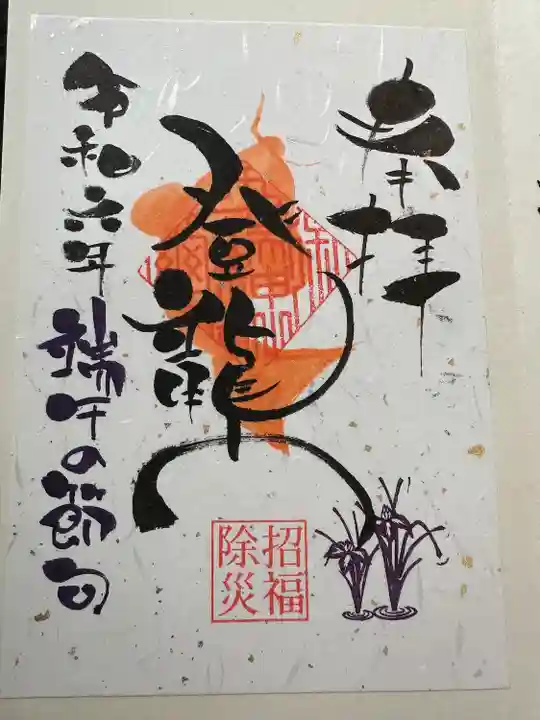 奉拝
登龍
令和六年 端午の節句
招福
除災